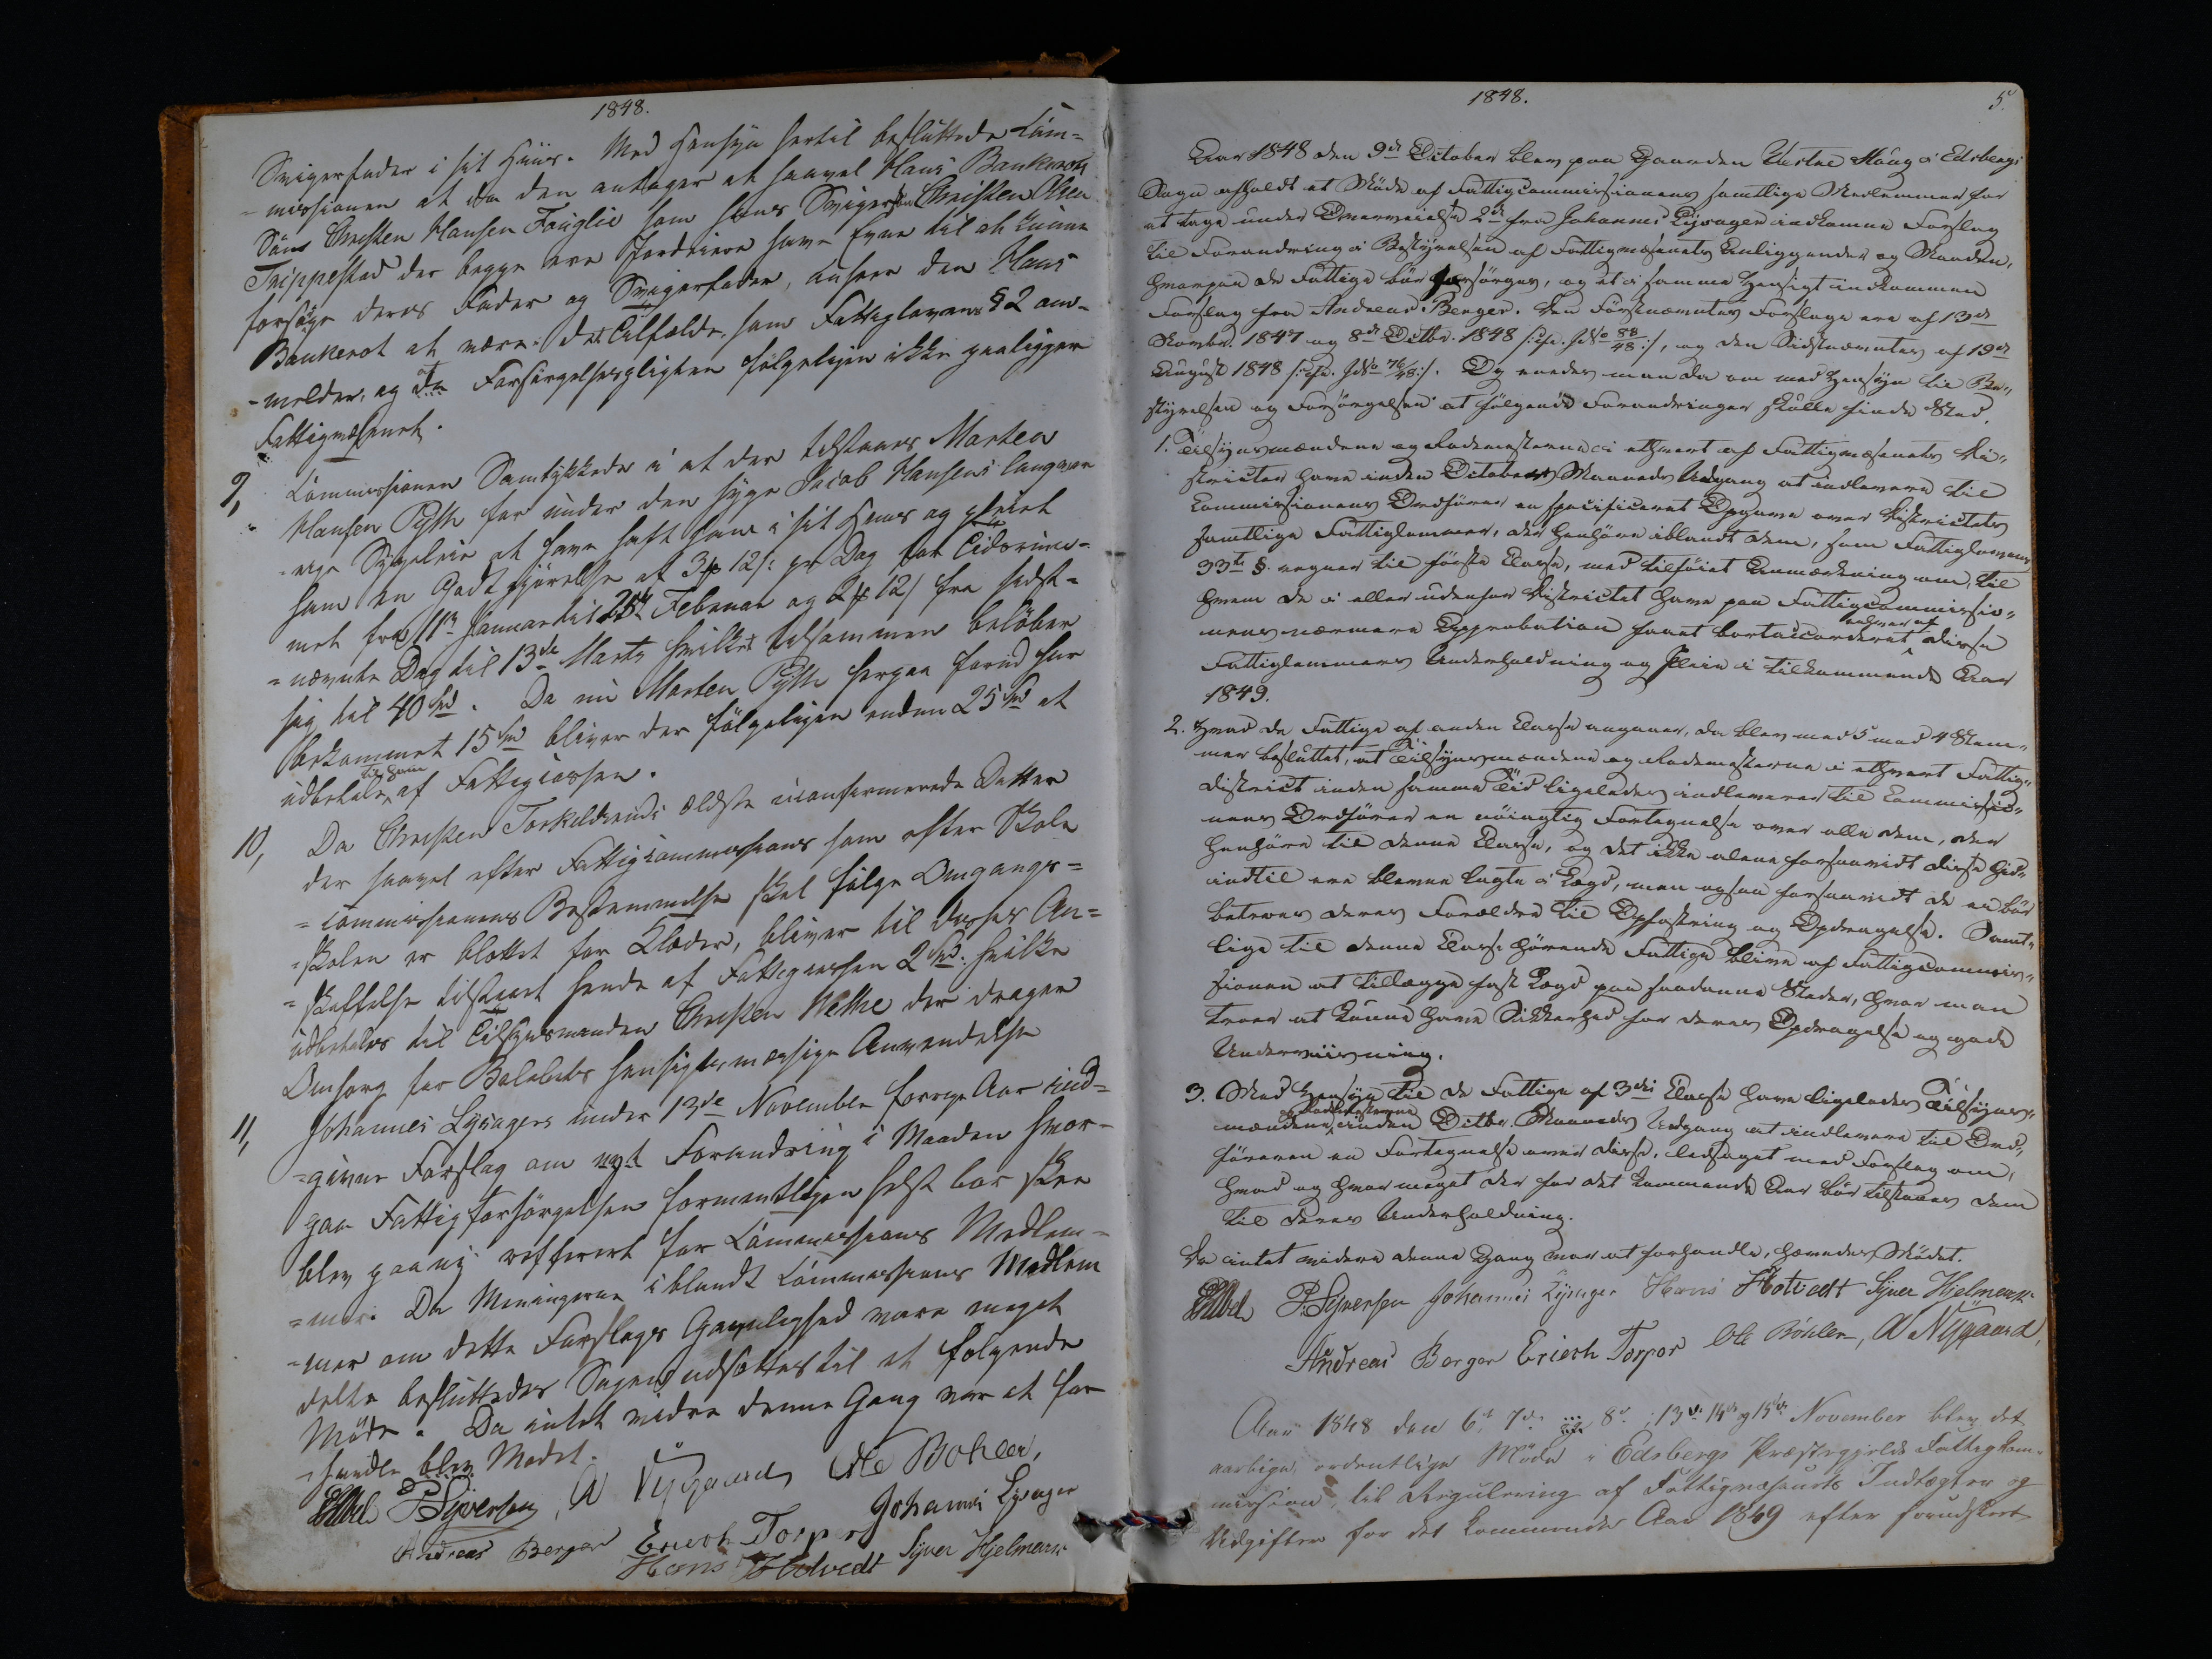 1848.
Svigerfader i sit Huus. Med Hensyn hertil besluttede Com=
=missionen at da den antager at saavel Hans Bankerots
Søns Christen Hansen Fauglie som hans Svigersøn Christen Olsen
Trippestad der begge ere Jordeiere have Evne til at kunne
forsørge deres Fader og Svigerfader, ansees den Hans
Bankerot at være i det Tilfælde, som Fattiglovens § 2 om=
=melder, og da Forsørgelsespligten følgeligen ikke paaligger
Fattigvæsenet.
9, Commissionen Samtykkede i at der tilstaaes Morten
Hansen Pysth for under den syge Jacob Hansens langvar
=ige Sygeleie at have havt ham i sit Huus og pleiet
ham en Godtgjørelse af 3 12 pr Dag for Tidsrum=
met fra 11 Januar til 25 Februar og 2 12 fra sidst=
=nævnte Dag til 13de Marts hvilket tilsammen beløber
sig til 40 Spd. Da nu Morten Pysth herpaa forud har
bekommet 15 Spd bliver der følgeligen endnu 25 Spd at
udbetale til ham af Fattigcassen.
10, Da Christen Torkeldsens ældste uconfirmerede Datter
der saavel efter Fattigcommissions som efter Skole
=commissionens Bestemmelse skal følge Omgangs=
=skolen er blottet for Klæder, bliver til disses An=
=skaffelse tilstaaet hende af Fattigcassen 2 Spd. hvilke
udbetales til Tilsynsmanden Christen Wethe der drager
Omsorg for Beløbets hensigtsmæssige Anvendelse
11, Johannes Lysagers under 13de November forrige Aar ind=
=givne Forslag om nogen Forandring i Maaden hvor=
paa Fattigforsørgelsen formentligen helst bør skee
blev paa ny refereret for Commissions Medlem=
=mer. Da Meningerne iblandt Commissions Medlem
=mer om dette Forslags Gavnlighed vare meget
delte besluttedes Sagen udsættes til et følgende
Møde. Da intet videre denne Gang var at for
=handle blev Mødet.
P Syversen, A Nygaard, Ole Bøhler,
Andreas Berger Erich Torper Johannes Lysager
Hans Hotvedt Syver Hjelmark
1848.
5.
Aar 1848 den 9de October blev paa Gaarden Vestre Haug i Edsbergs
Sogn afholdt et Møde af Fattigcommissionens samtlige Medlemmer for
at tage under Overveielse 2de fra Johannes Lysager indkomne Forslag
til Forandring i Bestyrelsen af Fattigvæsenets Anliggender og Maaden,
hvorpaa de Fattige bør forsørges, og et i samme Hensigt indkommen
Forslag fra Andreas Berger. Den Førstnævntes Forslage ere af 13de
Novbr. 1847 og 8de Octbr. 1848 /: cfr. JNo 88/48 :/, og den Sidstnævntes af 19de
August 1848 /: cfr. JNo 76/48 :/. Og enedes man da om med Hensyn til Be„
styrelsen og Forsørgelsen at følgende Forandringer skulle finde Sted.
1. Tilsynsmændene og Rodemesterne i ethvert af Fattigvæsenets Di„
stricter have inden October Maaneds Udgang at indlevere til
Commissionens Ordfører en specificeret Opgave over Districtets
samtlige Fattiglemmer, der henhøre iblandt dem, som Fattiglovens
33te §. regner til første Classe, med tilføiet Anmærkning om, til
hvem de i eller udenfor Districtet have paa Fattigcommissio„
nens nærmere Approbation faaet bortaccorderet enhver af disse
Fattiglemmers Underholdning og Pleie i tilkommende Aar
1849.
2. Hvad de Fattige af anden Classe angaaer, da blev med 5 mod 4 Stem„
mer besluttet, at Tilsynsmændene og Rodemesterne i ethvert Fattig„
district inden samme Tid ligeledes indleverer til Commissio„
nens Ordfører en nøiagtig Fortegnelse over alle dem, der
henhøre til denne Classe, og det ikke alene forsaavidt disse hid„
indtil ere blevne lagte i Lægd, men ogsaa forsaavidt de ei bør
betroes deres Forældre til Opfostring og Opdragelse. Samt„
lige til denne Classe hørende Fattige blive af Fattigcommis„
sionen at tillægge fast Lægd paa saadanne Steder, hvor man
troer at kunne have Sikkerhed for deres Opdragelse og gode
Underviisning.
3. Med Hensyn til de Fattige af 3die Classe have ligeledes Tilsyns„
mændene og Rodemesterne inden Octbr. Maaneds Udgang at indlevere til Ord„
føreren en Fortegnelse over disse, ledsaget med Forslag om,
hvad og hvor meget der for det kommende Aar bør tilstaaes dem
til deres Underholdning.
Da intet videre denne Gang var at forhandle, hævedes Mødet.
P. Syversen Johannes Lysager Hans Hotvedt Syver Hjelmark
Andreas Berger Erich Torper Ole Bøhler, A Nygaard,
Aar 1848 den 6te 7de og 8de, 13de 14de og 15de November blev det
aarlige, ordentlige Møde i Edsbergs Præstegjelds Fattigkom„
mission, til Regulering af Fattigvæsenets Indtægter og
Udgifter for det kommende Aar 1849 efter forudskeet